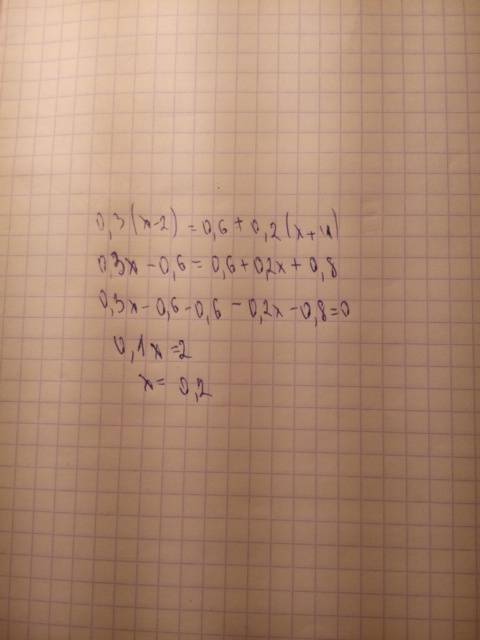 0,3(x-2) = 0,6 + 0,2(x+4)
0,3x - 0,6 = 0,6 + 0,2x + 0,8
0,3x - 0,6 - 0,6 - 0,2x - 0,8 = 0
0,1x = 2
x = 0,2